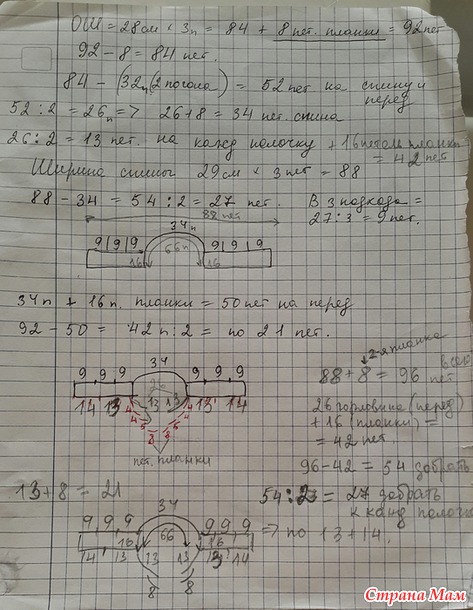 ОШ = 28 см × 3п = 84 + 8 пет. планки = 92 пет
92 – 8 = 84 пет.
84 – (32п (2 погона) = 52 пет на спину и перед
52 : 2 = 26п => 26 + 8 = 34 пет. спина
26 : 2 = 13 пет. на кажд полочку + 16 петель планки = 42 пет
Ширина спины 29 см × 3 пет = 88
88 – 34 = 54 : 2 = 27 пет. В 3 подхода = 27 : 3 = 9 пет.
88 пет
34п
9 | 9 | 9 66п 9 | 9 | 9
16 16
34п + 16п. планки = 50 пет на перед
92 – 50 = 42п : 2 = по 21 пет.
2-я планка
34
9 9 9 9 9 9
88 + 8 = 96 пет всего
14 13 13 13 13 14
26 горловина (перед) + 16 (планки) = 42 пет.
пет. планки
96 – 42 = 54 забрать
13 + 8 = 21
54 : 2 = 27 забрать с кажд полочки
=> по 13 + 14.
34
9 9 9 66 9 9 9
16 16
14 13 13 13 13 14
8 8
Страна Мам